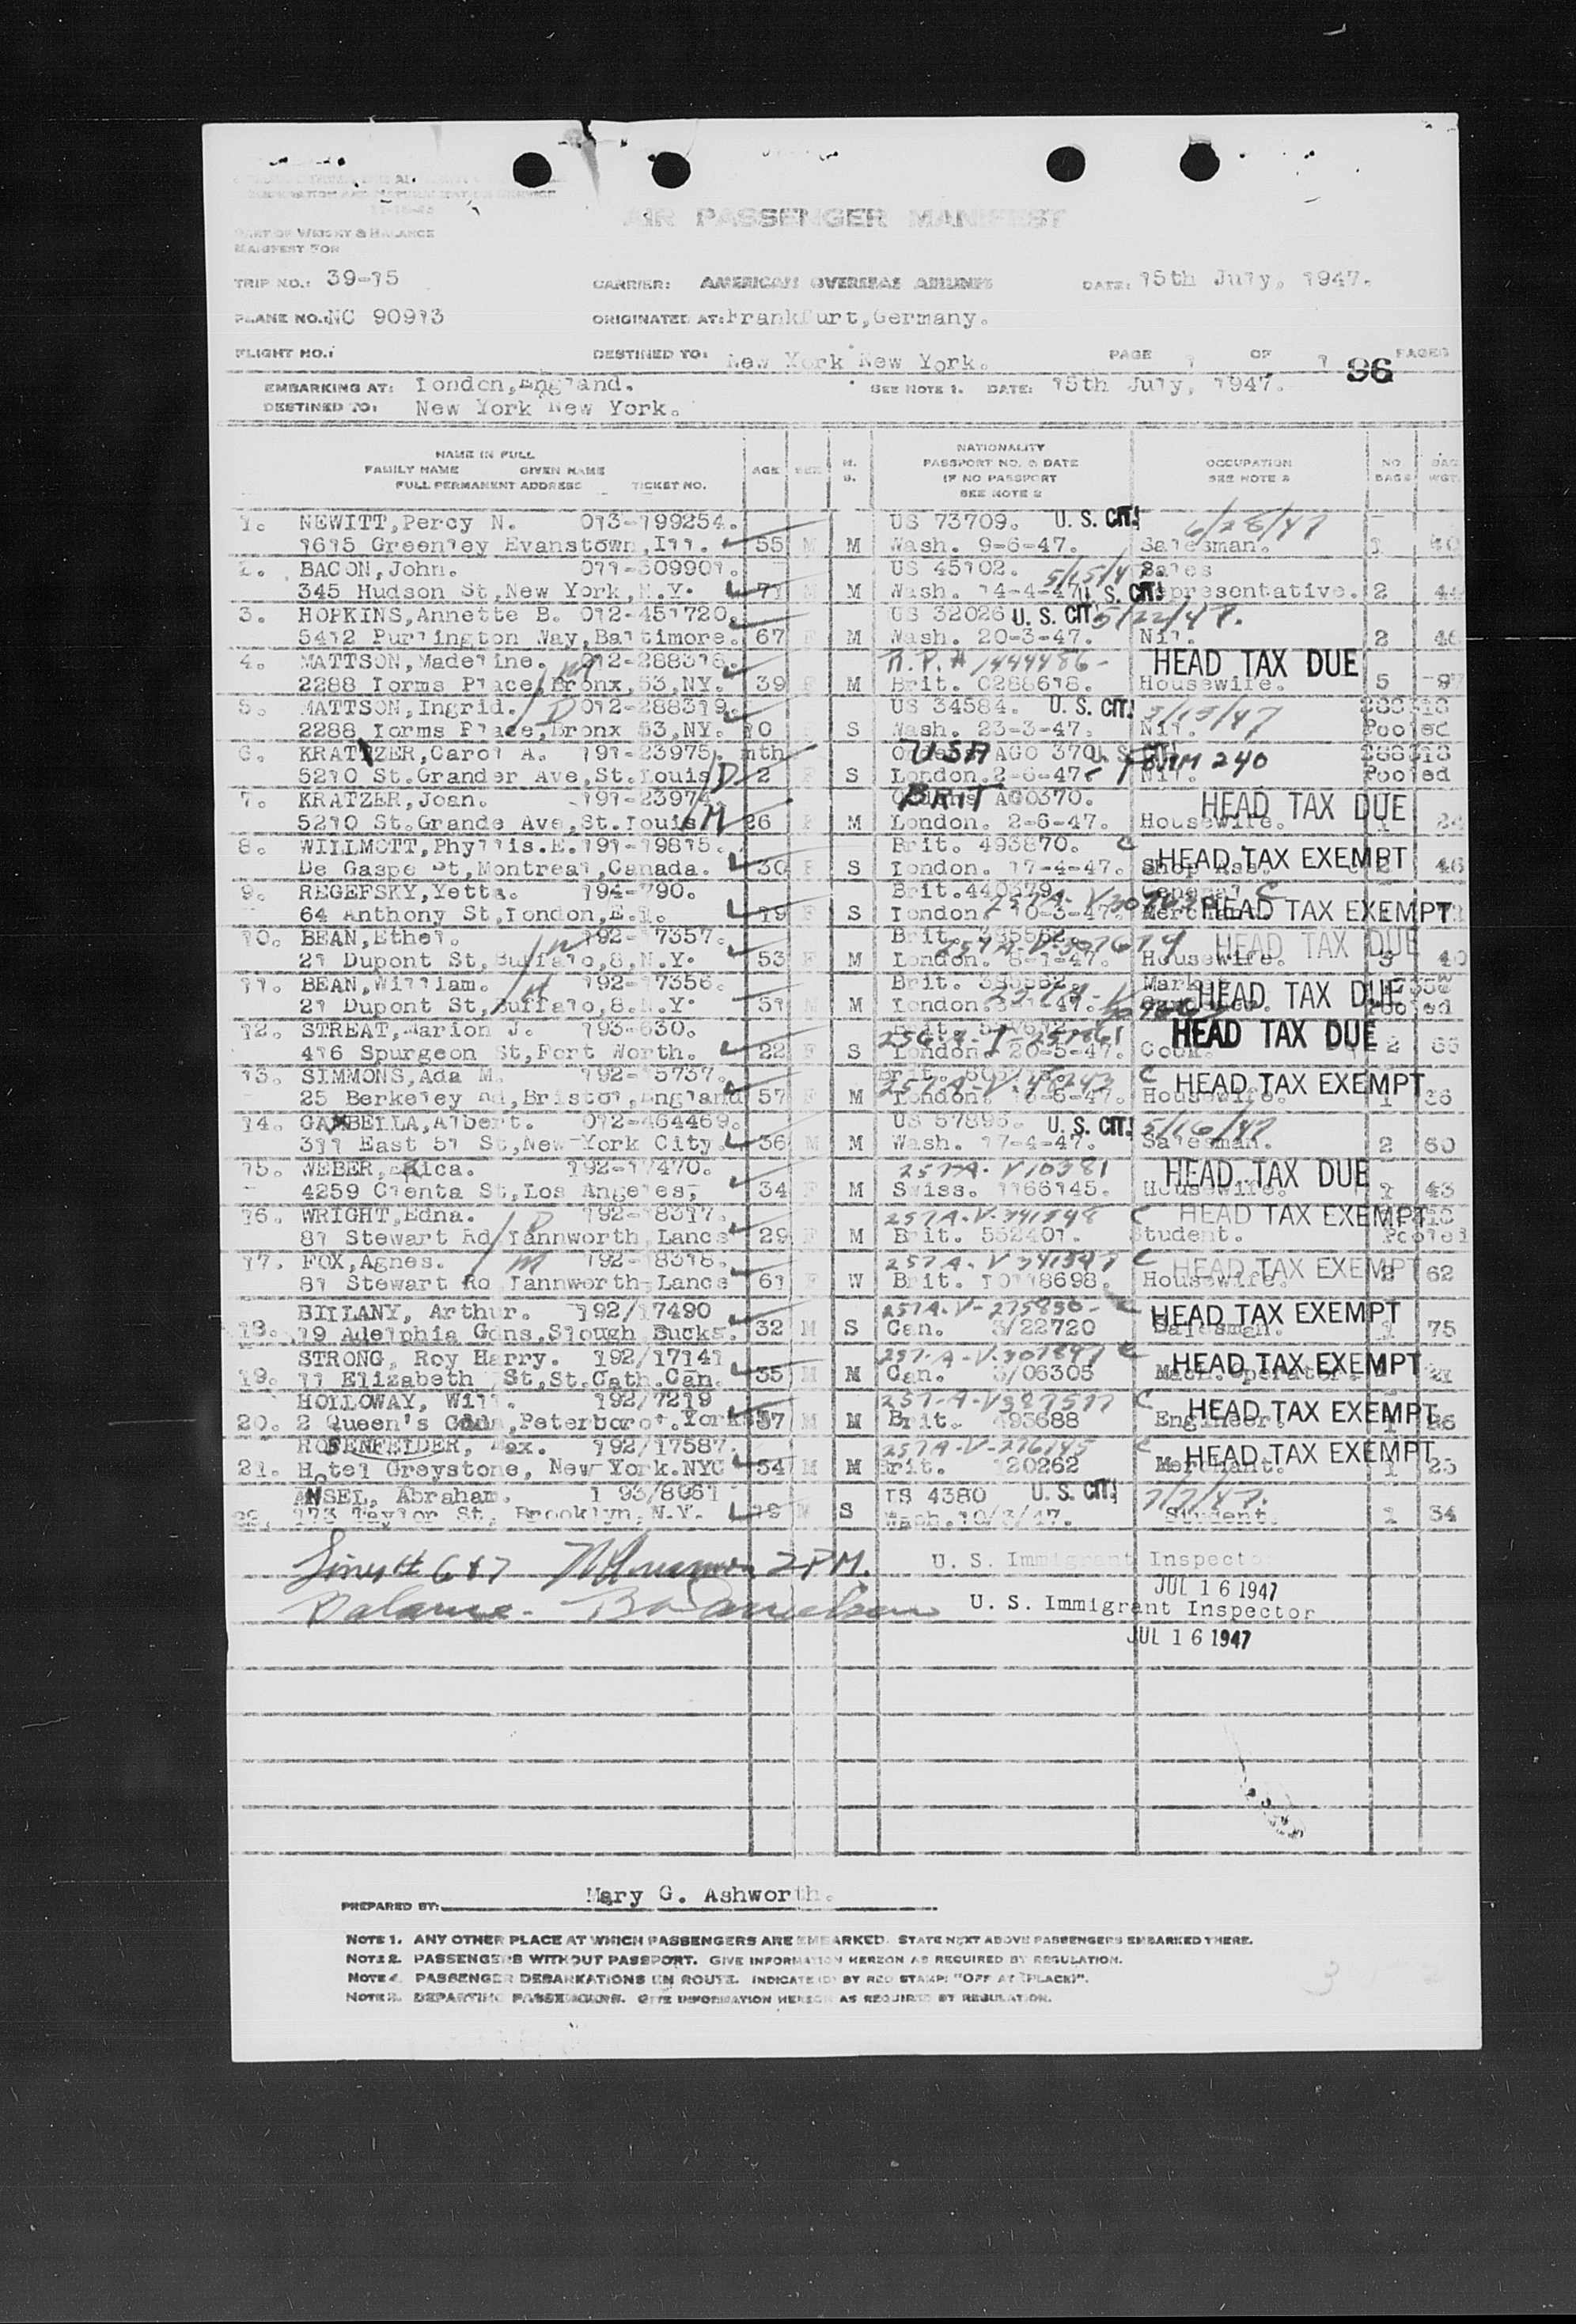 AIR PASSENGER MANIFEST
PART OF WEIGHT & BALANCE
MANIFEST FOR
TRIP NO.: 39-15 CARRIER: AMERICAN OVERSEAS AIRLINES DATE: 15th July, 1947.
PLANE NO.: NC 90913 ORIGINATED AT: Frankfurt, Germany.
FLIGHT NO.: DESTINED TO: New York New York. PAGE 1 OF 1 PAGES
96
EMBARKING AT: London, England. SEE NOTE 1. DATE: 15th July, 1947.
DESTINED TO: New York New York.
NAME IN FULL
FAMILY NAME GIVEN NAME
FULL PERMANENT ADDRESS TICKET NO.
AGE SEX M. S.
NATIONALITY
PASSPORT NO. & DATE
IF NO PASSPORT
SEE NOTE 2
OCCUPATION
SEE NOTE 2
NO BAGS BAG WGT.
1. NEWITT, Percy N. 013-199254. US 73709. U. S. CIT. 6/28/47
1615 Greenley Evanstown, Ill. 55 M M Wash. 9-6-47. Salesman. 1 40
2. BACON, John. 011-309901. US 45102. 5/15/47 Sales
345 Hudson St, New York, N.Y. 71 M M Wash. 14-4-47 U. S. CIT. Representative. 2 44
3. HOPKINS, Annette B. 012-451720. US 32026 U. S. CIT. 5/22/47.
5412 Purlington Way, Baltimore. 67 F M Wash. 20-3-47. Nil. 2 46
4. MATTSON, Madeline. M 012-288318. R.P.# 1444486- HEAD TAX DUE
2288 Lorms Place, Bronx, 53, NY. 39 F M Brit. C288618. Housewife. 5 97
5. MATTSON, Ingrid. D 012-288319. US 34584. U. S. CIT. 3/13/47 288318
2288 Lorms Place, Bronx 53, NY. 10 S Wash. 23-3-47. Nil. Pooled
6. KRATZER, Carol A. 191-23975. mth USA AGO 370 U. S. CIT. FORM 240 288318
5210 St. Grander Ave, St. Louis D 2 F S London. 2-6-47. Nil. Pooled
7. KRATZER, Joan. 191-23974. BRIT AGO370. HEAD TAX DUE
5210 St. Grande Ave, St. Louis M 26 F M London. 2-6-47. Housewife. 1 24
8. WILLMOTT, Phyllis. E. 191-19815. Brit. 493870. C HEAD TAX EXEMPT
De Gaspe St, Montreal, Canada. 30 F S London. 17-4-47. Shop Ass. 2 46
9. REGEFSKY, Yetta. 194-790. Brit. 440379. General C HEAD TAX EXEMPT
64 Anthony St, London, E.1. 19 F S London. 10-3-47.
10. BEAN, Ethel. M 192-17357. Brit. 385562. HEAD TAX DUE
21 Dupont St, Buffalo, 8, N.Y. 53 F M London. 8-1-47. Housewife. 3 40
11. BEAN, William. M 192-17356. Brit. HEAD TAX DUE
21 Dupont St, Buffalo, 8. N.Y. 51 M M London. Pooled
12. STREAT, Marion J. 193-630. 256 HEAD TAX DUE
416 Spurgeon St, Fort Worth. 22 F S London. 20-5-47. Cook. 2 65
13. SIMMONS, Ada M. 192-15737. Brit. C HEAD TAX EXEMPT
25 Berkeley Rd, Bristol, England 57 F M London. Housewife. 1 36
14. GAMBELLA, Albert. 012-464469. US 57895. U. S. CIT. 5/16/47
311 East 51 St, New York City. 36 M M Wash. 17-4-47. Salesman. 2 60
15. WEBER, Erica. 192-17470. 257A-V10381 HEAD TAX DUE
4259 Clenta St, Los Angeles, 34 F M Swiss. 1166145. Housewife. 1 43
16. WRIGHT, Edna. D 192-18317. 257A-V-341548 C HEAD TAX EXEMPT
81 Stewart Rd Tannworth, Lancs 29 F M Brit. 552401. Student. Pooled
17. FOX, Agnes. M 192-18318. 257A-V341547 C HEAD TAX EXEMPT
81 Stewart Ro Tannworth, Lancs 61 F W Brit. L0118698. Housewife. 2 62
BILLANY, Arthur. 192/17490 257A-V-275830- C HEAD TAX EXEMPT
18. 19 Adelphia Gdns, Slough Bucks. 32 M S Can. 3/22720 Salesman. 1 75
STRONG, Roy Harry. 192/17141 257-A-V-307897 C HEAD TAX EXEMPT
19. 11 Elizabeth St, St. Cath. Can. 35 M M Can. 3/06305 Mach. Operator. 1 21
HOLLOWAY, Will. 192/7219 257-A-V387577 C HEAD TAX EXEMPT
20. 2 Queen's Gdns, Peterboro. 37 M M Brit. 493688 Engineer. 1 26
ROFENFELDER, Max. 192/17587. 257A-V-276145 C HEAD TAX EXEMPT
21. Hotel Greystone, New York. NYC 54 M M Brit. 120262 Merchant. 1 25
ANSEL, Abraham. 193/8061 US 4380 U. S. CIT. 7/7/47.
22. 173 Taylor St, Brooklyn, N.Y. 19 M S Wash. 10/3/47. Student. 1 34
Lines # 6 & 7 2 PM. U. S. Immigrant Inspector
JUL 16 1947
Balance - U. S. Immigrant Inspector
JUL 16 1947
PREPARED BY: Mary G. Ashworth.
NOTE 1. ANY OTHER PLACE AT WHICH PASSENGERS ARE EMBARKED. STATE NEXT ABOVE PASSENGERS EMBARKED THERE.
NOTE 2. PASSENGERS WITHOUT PASSPORT. GIVE INFORMATION HEREON AS REQUIRED BY REGULATION.
NOTE 4. PASSENGER DEBARKATIONS EN ROUTE. INDICATE (D) BY RED STAMP: "OFF AT (PLACE)".
NOTE 3. DEPARTING PASSENGERS. GIVE INFORMATION HEREON AS REQUIRED BY REGULATION.